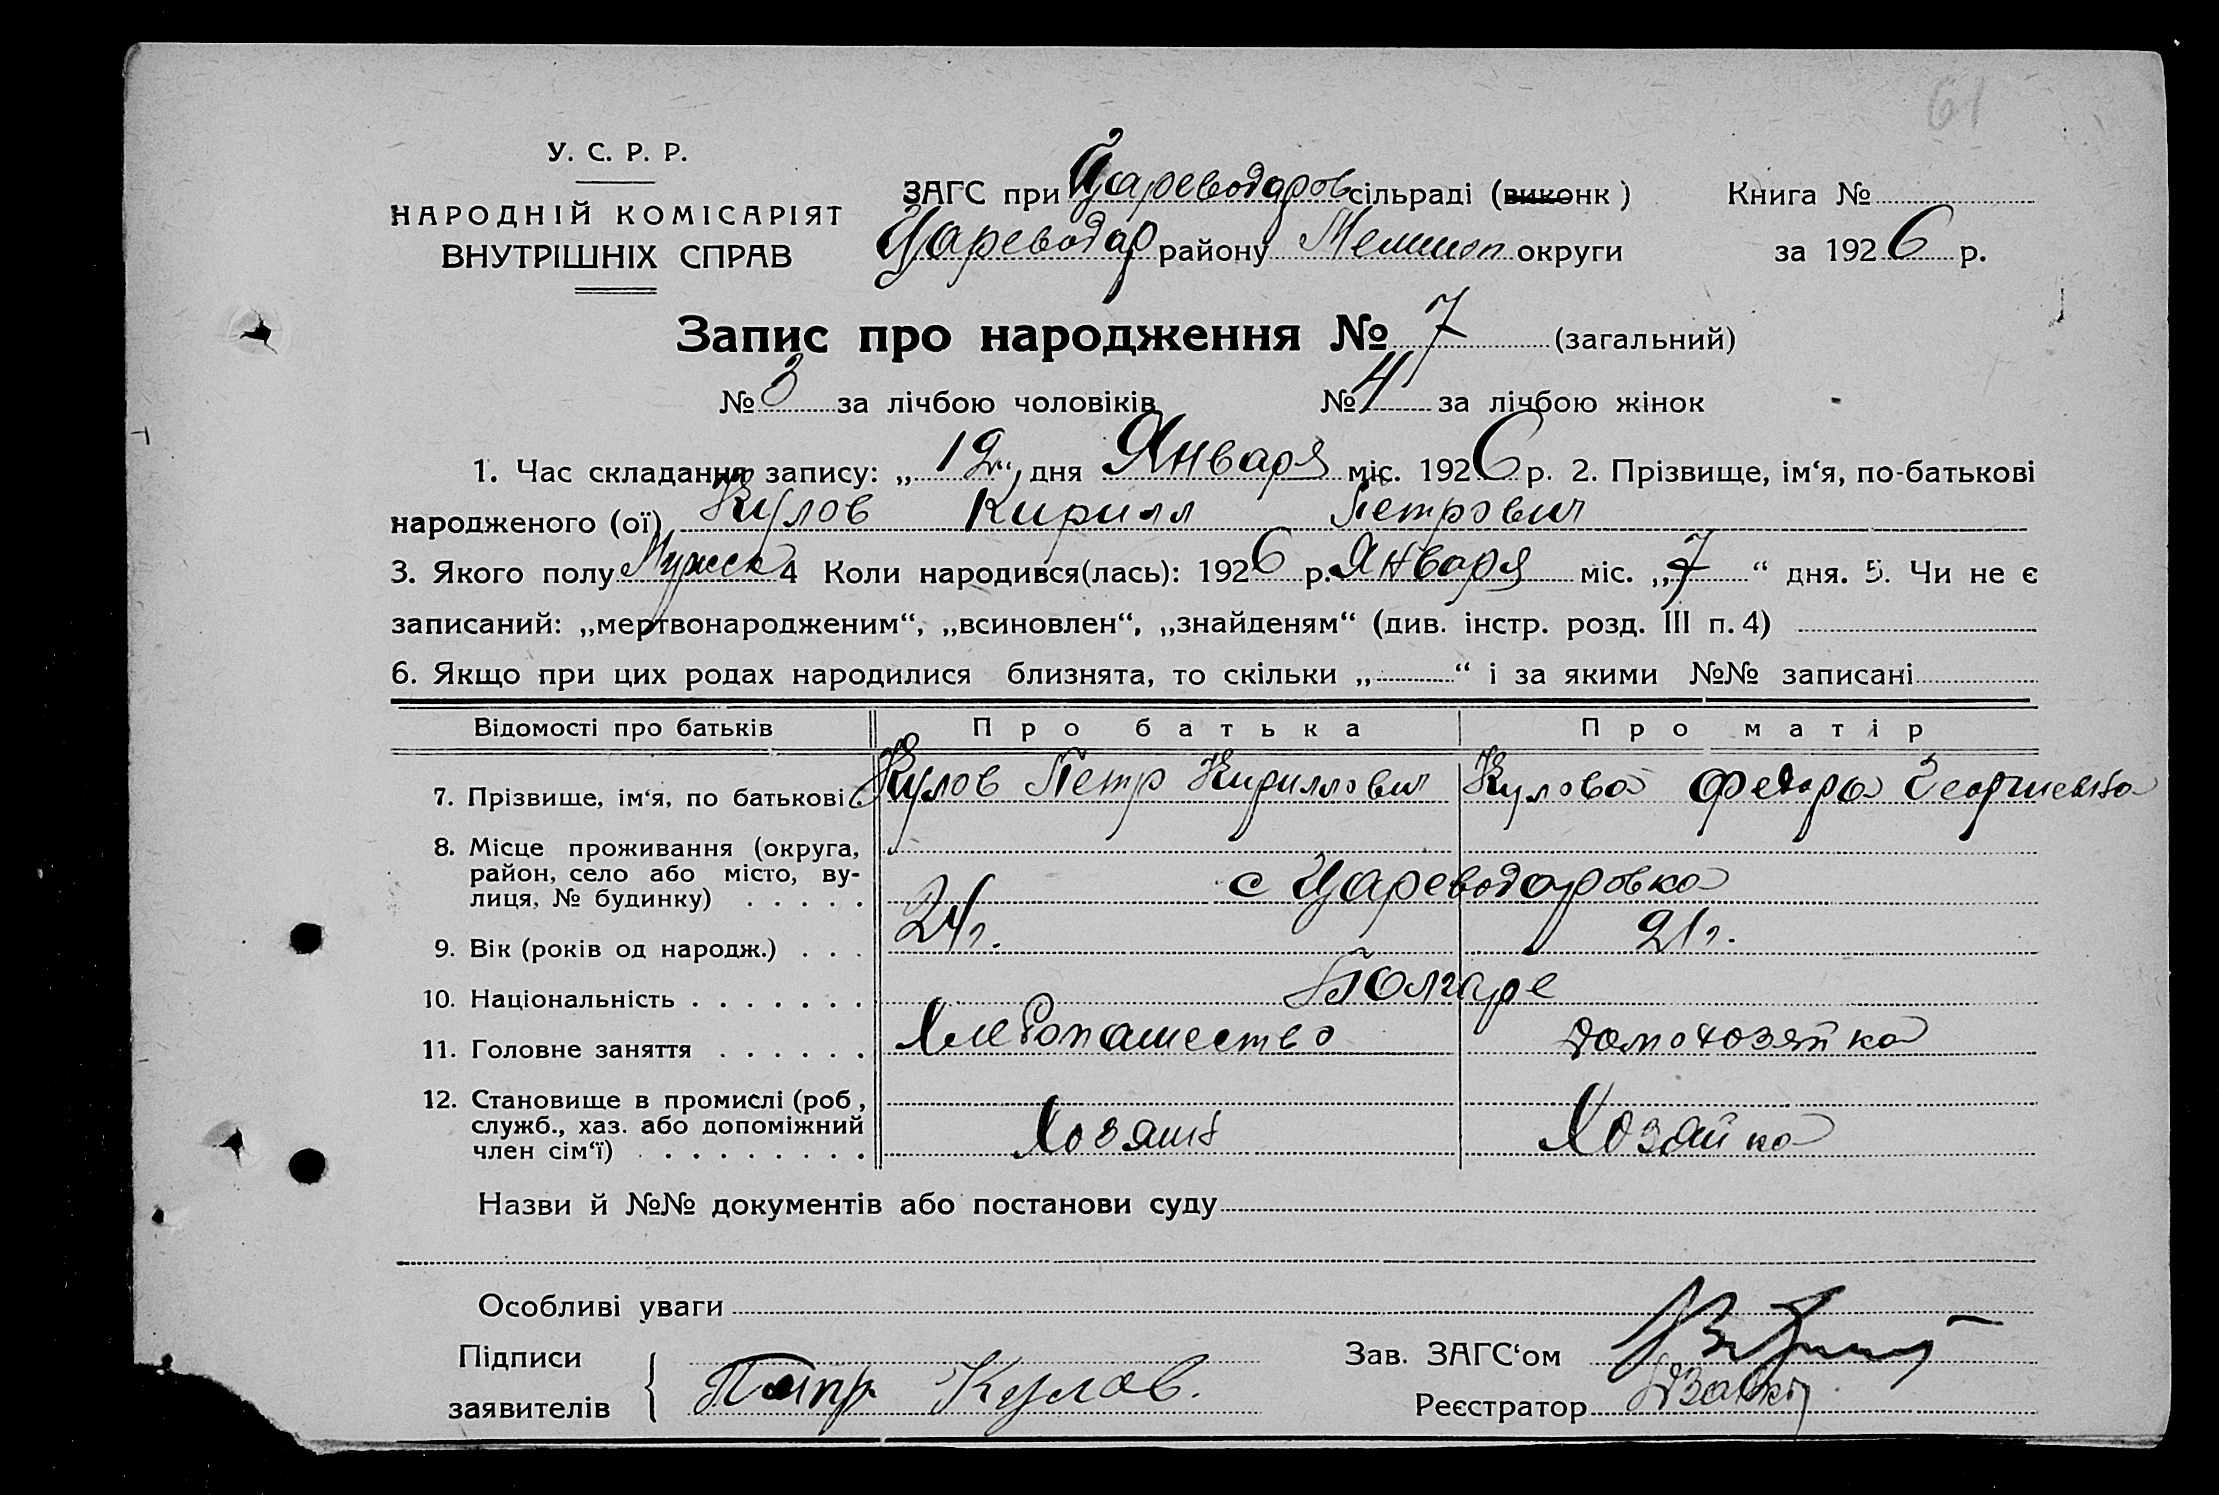 61
У. С. Р. Р.
НАРОДНІЙ КОМІСАРІЯТ
ВНУТРІШНІХ СПРАВ
ЗАГС при Цареводаров сільраді (виконк)
Цареводар району Мелитоп округи
Книга №
за 1926 р.
Запис про народження № 7 (загальний)
№ 3 за лічбою чоловіків № 4 за лічбою жінок
1. Час складання запису: „12“ дня Января міс. 1926 р. 2. Прізвище, ім‘я, по-батькові
народженого (ої) Кулов Кирилл Петрович
3. Якого полу Мужск 4 Коли народився(лась): 1926 р. Января міс. „7“ дня. 5. Чи не є
записаний: „мертвонародженим“, „всиновлен“, „знайденям“ (див. інстр. розд. III п. 4)
6. Якщо при цих родах народилися близнята, то скільки „ “ і за якими №№ записані
Відомості про батьків Про батька Про матір
7. Прізвище, ім‘я, по батькові Кулов Петр Кириллович Кулова Федора Георгиевна
8. Місце проживання (округа,
район, село або місто, ву-
лиця, № будинку) с Цареводаровка
9. Вік (років од народж.) 24 г. 21 г.
10. Національність Болгаре
11. Головне заняття Хлебопашество домохозяйка
12. Становище в промислі (роб,
служб., хаз. або допоміжний
член сім‘ї) Хозяин Хозяйка
Назви й №№ документів або постанови суду
Особливі уваги
Підписи
заявителів Петр Кулов.
Зав. ЗАГС‘ом
Реєстратор